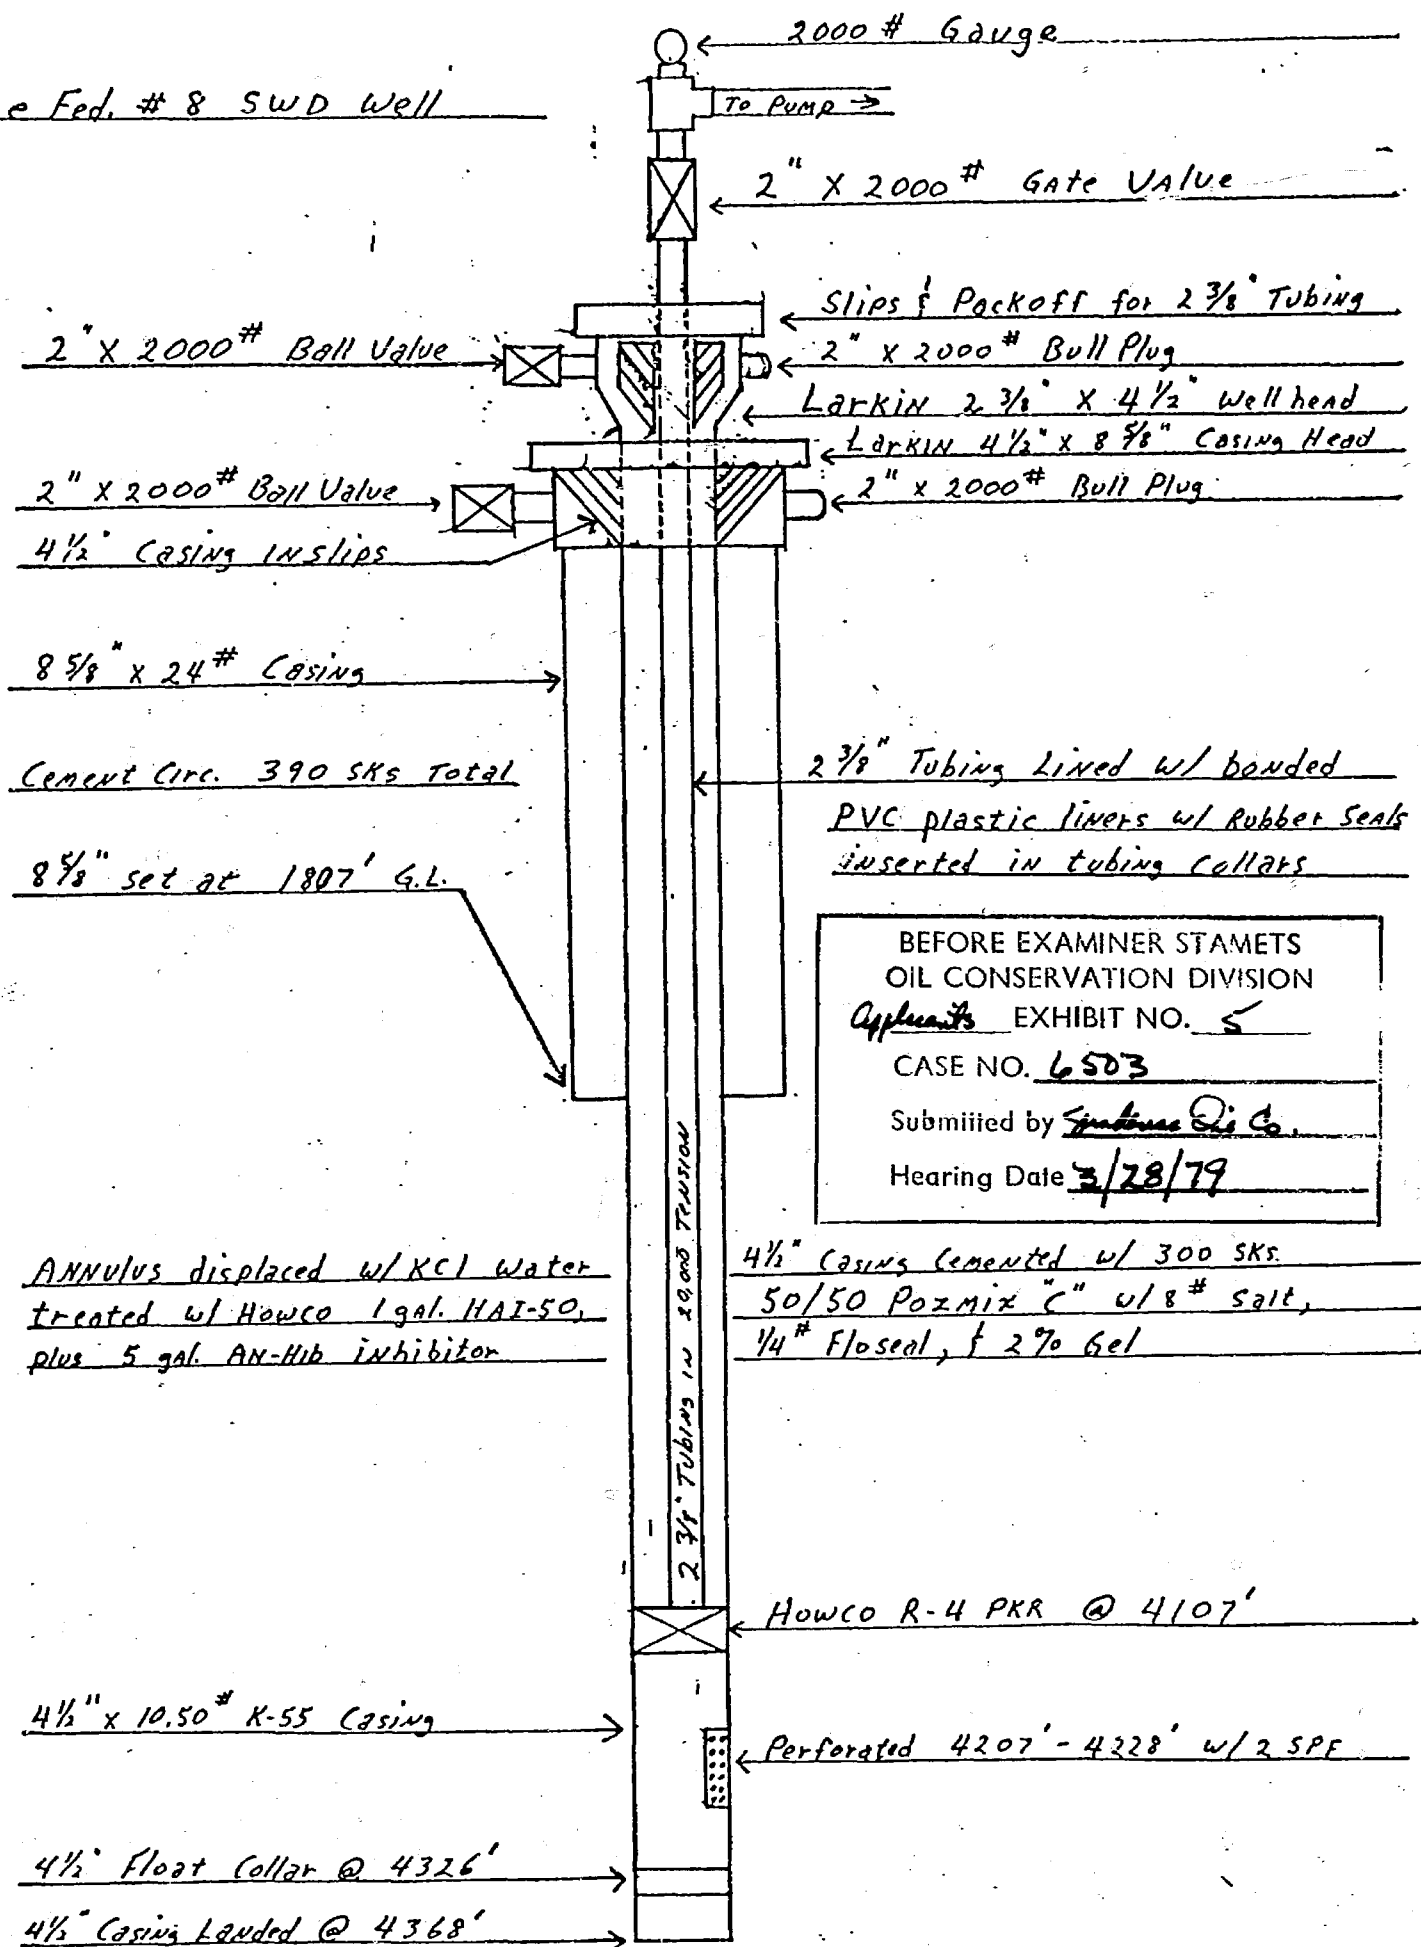 2000 # Gauge
e Fed. # 8 SWD Well
To Pump →
2" X 2000 # GAte VAlve
Slips & Packoff for 2 3/8" Tubing
2" X 2000 # Ball Valve
2" X 2000 # Bull Plug
Larkin 2 3/8" X 4 1/2" Wellhead
Larkin 4 1/2" x 8 5/8" Casing Head
2" X 2000 # Ball Valve
2" X 2000 # Bull Plug
4 1/2" Casing In slips
8 5/8" x 24 # Casing
Cement Circ. 390 SKs Total
2 3/8" Tubing Lined w/ bonded
PVC plastic liners w/ Rubber Seals
inserted in tubing Collars
8 5/8" set at 1807' G.L.
BEFORE EXAMINER STAMETS
OIL CONSERVATION DIVISION
Applicants EXHIBIT NO. 5
CASE NO. 6503
Submitted by Oil Co.
Hearing Date 3/28/79
2 3/8" Tubing IN 20,000 TENSION
ANNulus displaced w/ KCl Water
treated w/ Howco 1 gal. HAI-50,
plus 5 gal. AN-Hib inhibitor
4 1/2" Casing Cemented w/ 300 SKs.
50/50 Pozmix "C" w/ 8 # Salt,
1/4 # Floseal, & 2% Gel
Howco R-4 PKR @ 4107'
4 1/2" x 10.50 # K-55 Casing
Perforated 4207' - 4228' w/ 2 SPF
4 1/2" Float Collar @ 4326'
4 1/2" Casing Landed @ 4368'